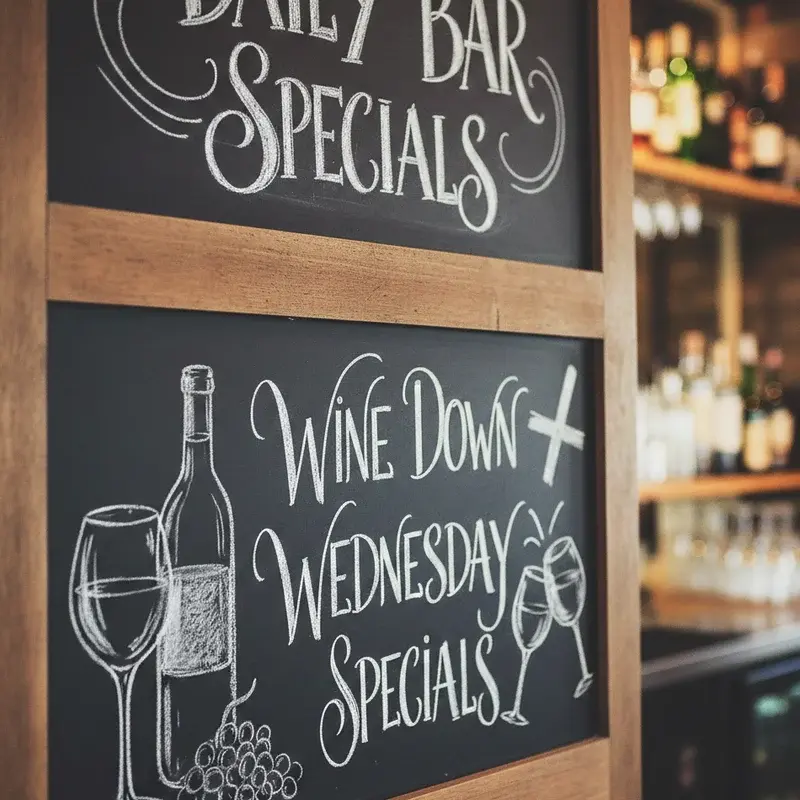 DAILY BAR
SPECIALS
WINE DOWN
WEDNESDAY
SPECIALS